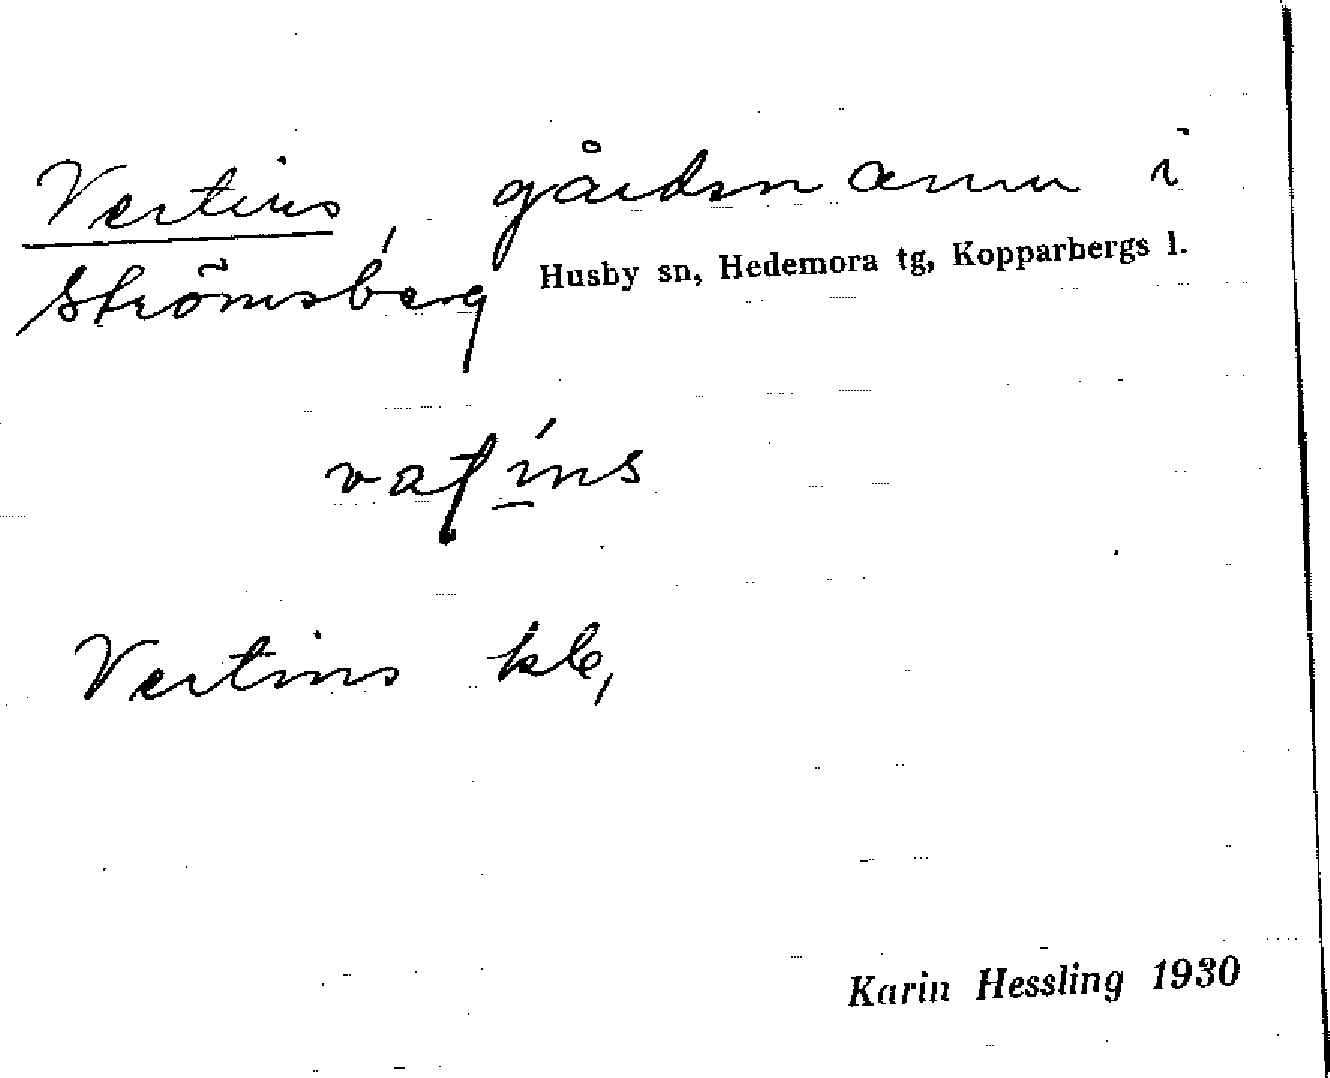 Vertins, gårdsnamn i
Strömsberg Husby sn, Hedemora tg, Kopparbergs l.
Vertins kb,
Karin Hessling 1930